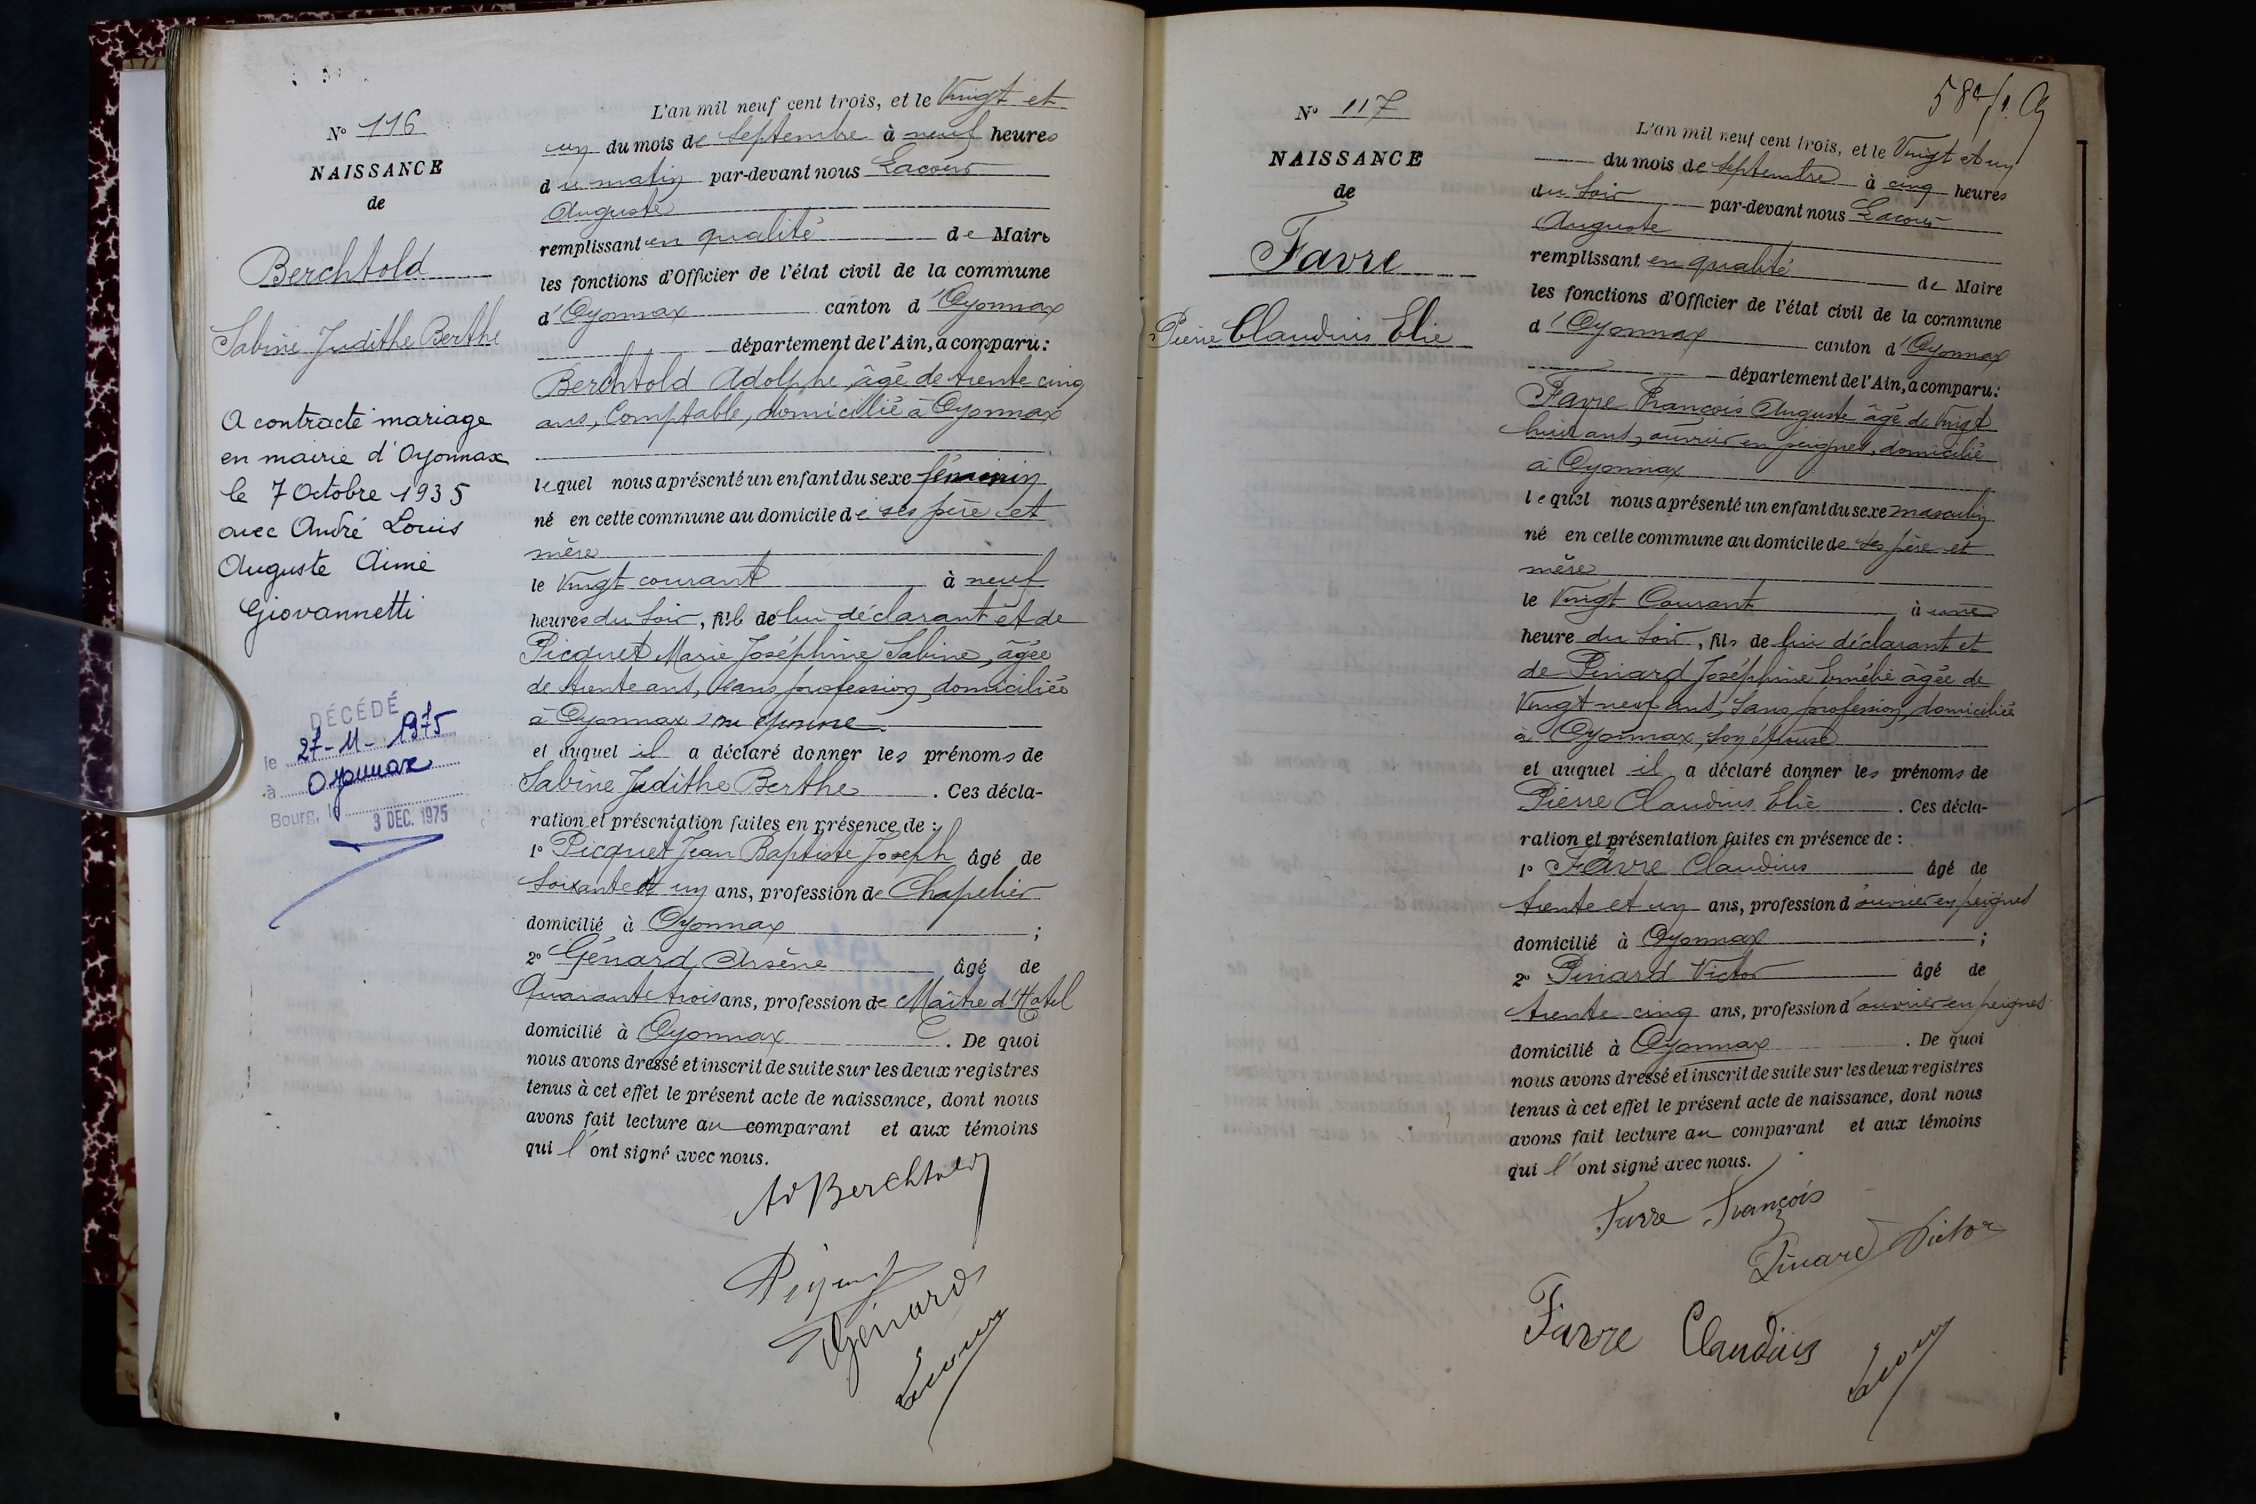 N° 116
NAISSANCE
de
Berchtold
Sabine Judithe Berthe
A contracté mariage
en mairie d'Oyonnax
le 7 Octobre 1935
avec André Louis
Auguste Aimé
Giovannetti
DÉCÉDÉ
le 27-11-1975
à Oyonnax
Bourg, l
3 DEC. 1975
L'an mil neuf cent trois, et le Vingt et
un du mois de Septembre à neuf heures
du matin par-devant nous Lacour
Auguste
remplissant en qualité de Maire
les fonctions d'Officier de l'état civil de la commune
d'Oyonnax canton d'Oyonnax
département de l'Ain, a comparu:
Berchtold Adolphe, âgé de trente cinq
ans, Comptable, domicilié à Oyonnax
lequel nous a présenté un enfant du sexe féminin
né en cette commune au domicile de ses père et
mère
le Vingt courant à neuf
heures du soir, fille de lui déclarant et de
Picquet Marie Joséphine Sabine, âgée
de trente ans, sans profession, domiciliée
à Oyonnax son épouse
et auquel il a déclaré donner les prénoms de
Sabine Judithe Berthe. Ces décla-
ration et présentation faites en présence de:
1° Picquet Jean Baptiste Joseph âgé de
Soixante et un ans, profession de Chapelier
domicilié à Oyonnax;
2° Génard Arsène âgé de
Quarante trois ans, profession de Maître d'Hotel
domicilié à Oyonnax. De quoi
nous avons dressé et inscrit de suite sur les deux registres
tenus à cet effet le présent acte de naissance, dont nous
avons fait lecture au comparant et aux témoins
qui l'ont signé avec nous.
Ad Berchtold
Génard
Lacour
58e
N° 117
NAISSANCE
de
Favre
Pierre Claudius Elie
L'an mil neuf cent trois, et le Vingt et un
du mois de Septembre à cinq heures
du Soir par-devant nous Lacour
Auguste
remplissant en qualité de Maire
les fonctions d'Officier de l'état civil de la commune
d'Oyonnax canton d'Oyonnax
département de l'Ain, a comparu:
Favre François Auguste âgé de Vingt
huit ans, ouvrier en peignes, domicilié
à Oyonnax
lequel nous a présenté un enfant du sexe masculin
né en cette commune au domicile de ses père et
mère
le Vingt Courant à une
heure du Soir, fils de lui déclarant et
de Pinard Joséphine Émélie âgée de
Vingt neuf ans, sans profession, domiciliée
à Oyonnax, son épouse
et auquel il a déclaré donner les prénoms de
Pierre Claudius Elie. Ces décla-
ration et présentation faites en présence de:
1° Favre Claudius âgé de
trente et un ans, profession d'ouvrier en peignes
domicilié à Oyonnax;
2° Pinard Victor âgé de
trente cinq ans, profession d'ouvrier en peignes
domicilié à Oyonnax. De quoi
nous avons dressé et inscrit de suite sur les deux registres
tenus à cet effet le présent acte de naissance, dont nous
avons fait lecture au comparant et aux témoins
qui l'ont signé avec nous.
Favre François
Pinard Victor
Favre Claudius
Lacour